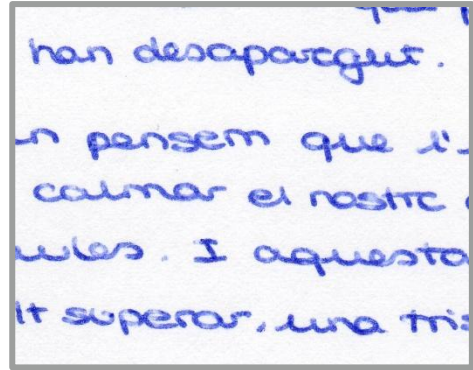 que p
han desaparegut.
n pensem que l'
calmar el nostre
ules. I aquesta
lt superar, una tris